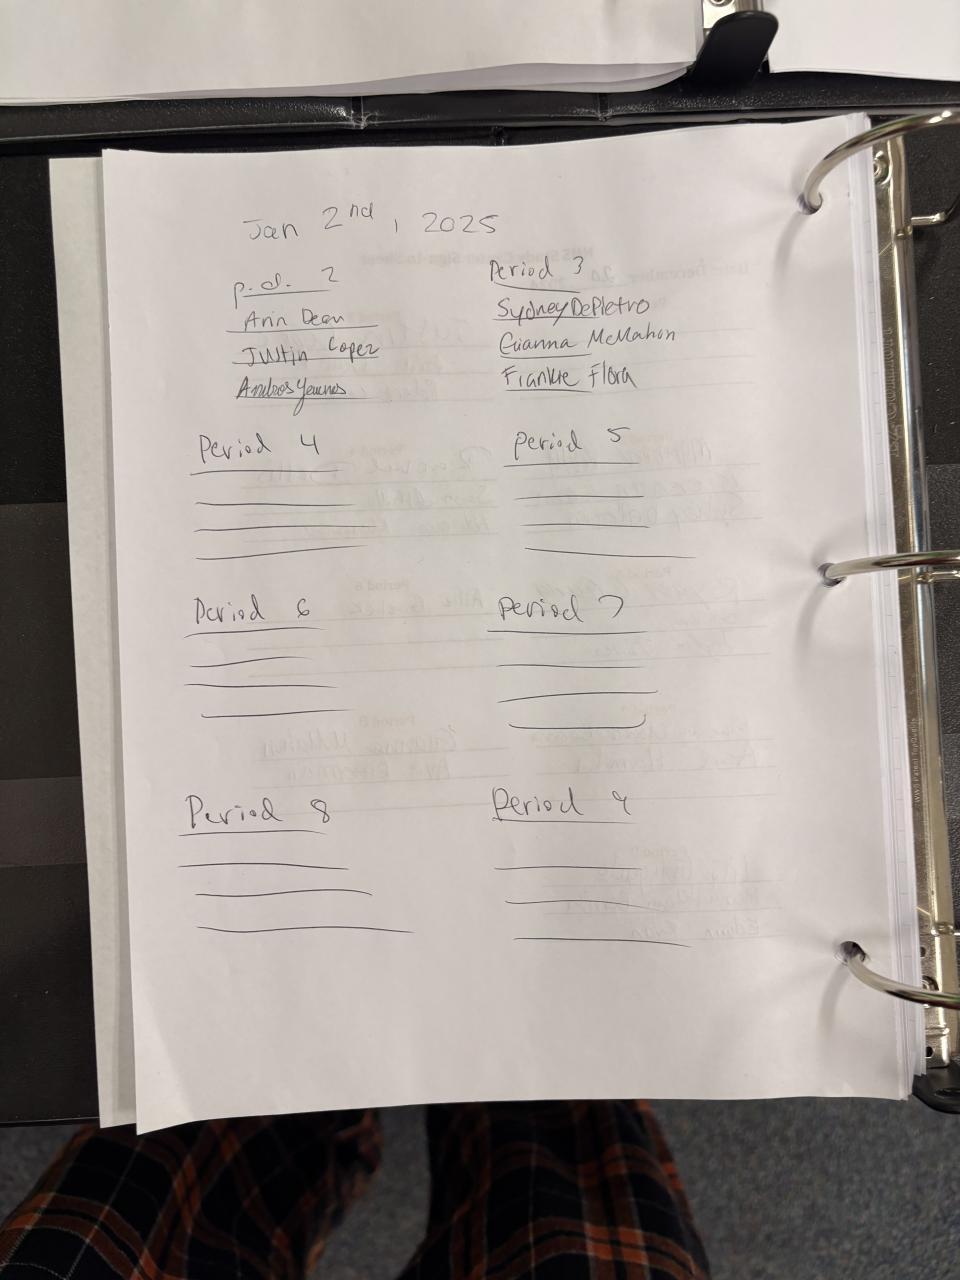 Jan 2nd, 2025
p.d. 2
Arin Dean
Justin Lopez
Andros
Period 3
Sydney DePietro
Gianna McMahon
Frankie Flora
Period 4
Period 5
Period 6
Period 7
Period 8
Period 9